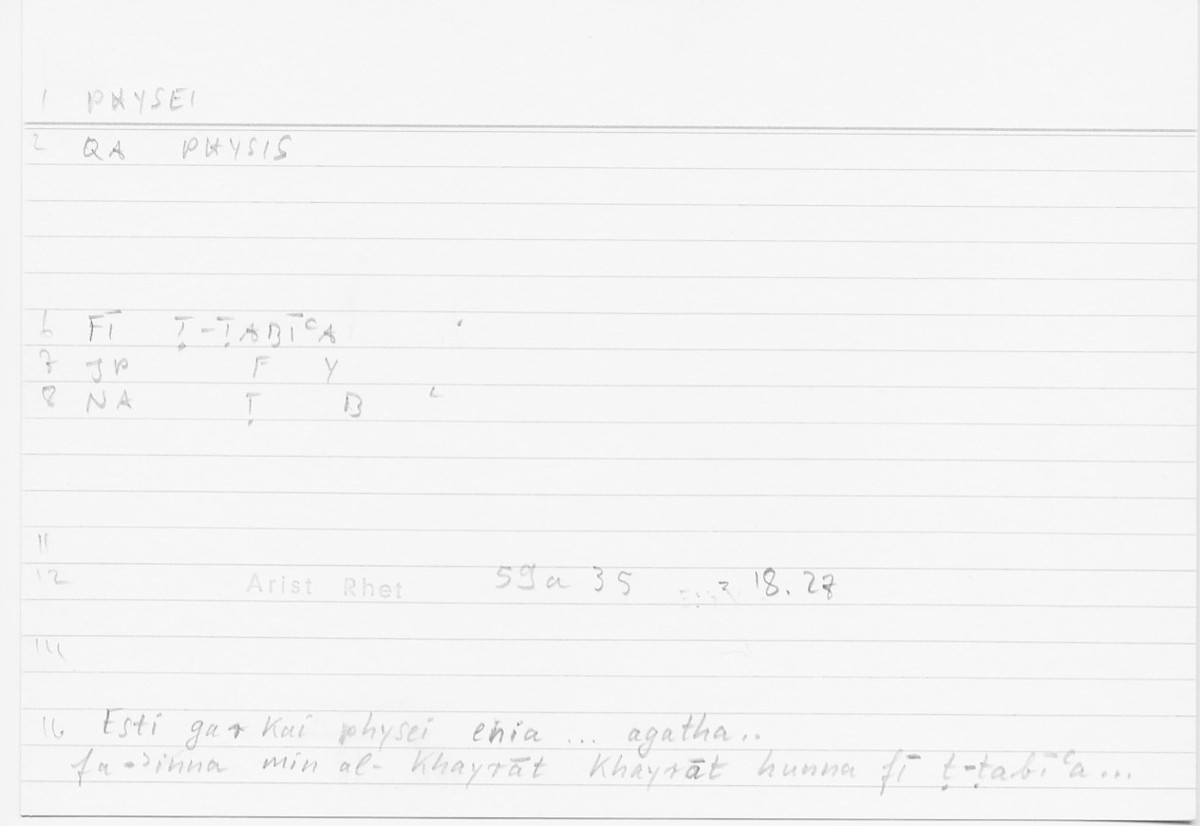 1 PHYSEI
2 QA PHYSIS
6 FĪ Ṭ-ṬABĪᶜA
7 JP F Y
8 NA Ṭ B ᶜ
11
12 Arist Rhet 59a 35 18.27
14
16 Esti gar kai physei enia ... agatha..
fa-ʾinna min al- khayrāt khayrāt hunna fī ṭ-ṭabīᶜa...